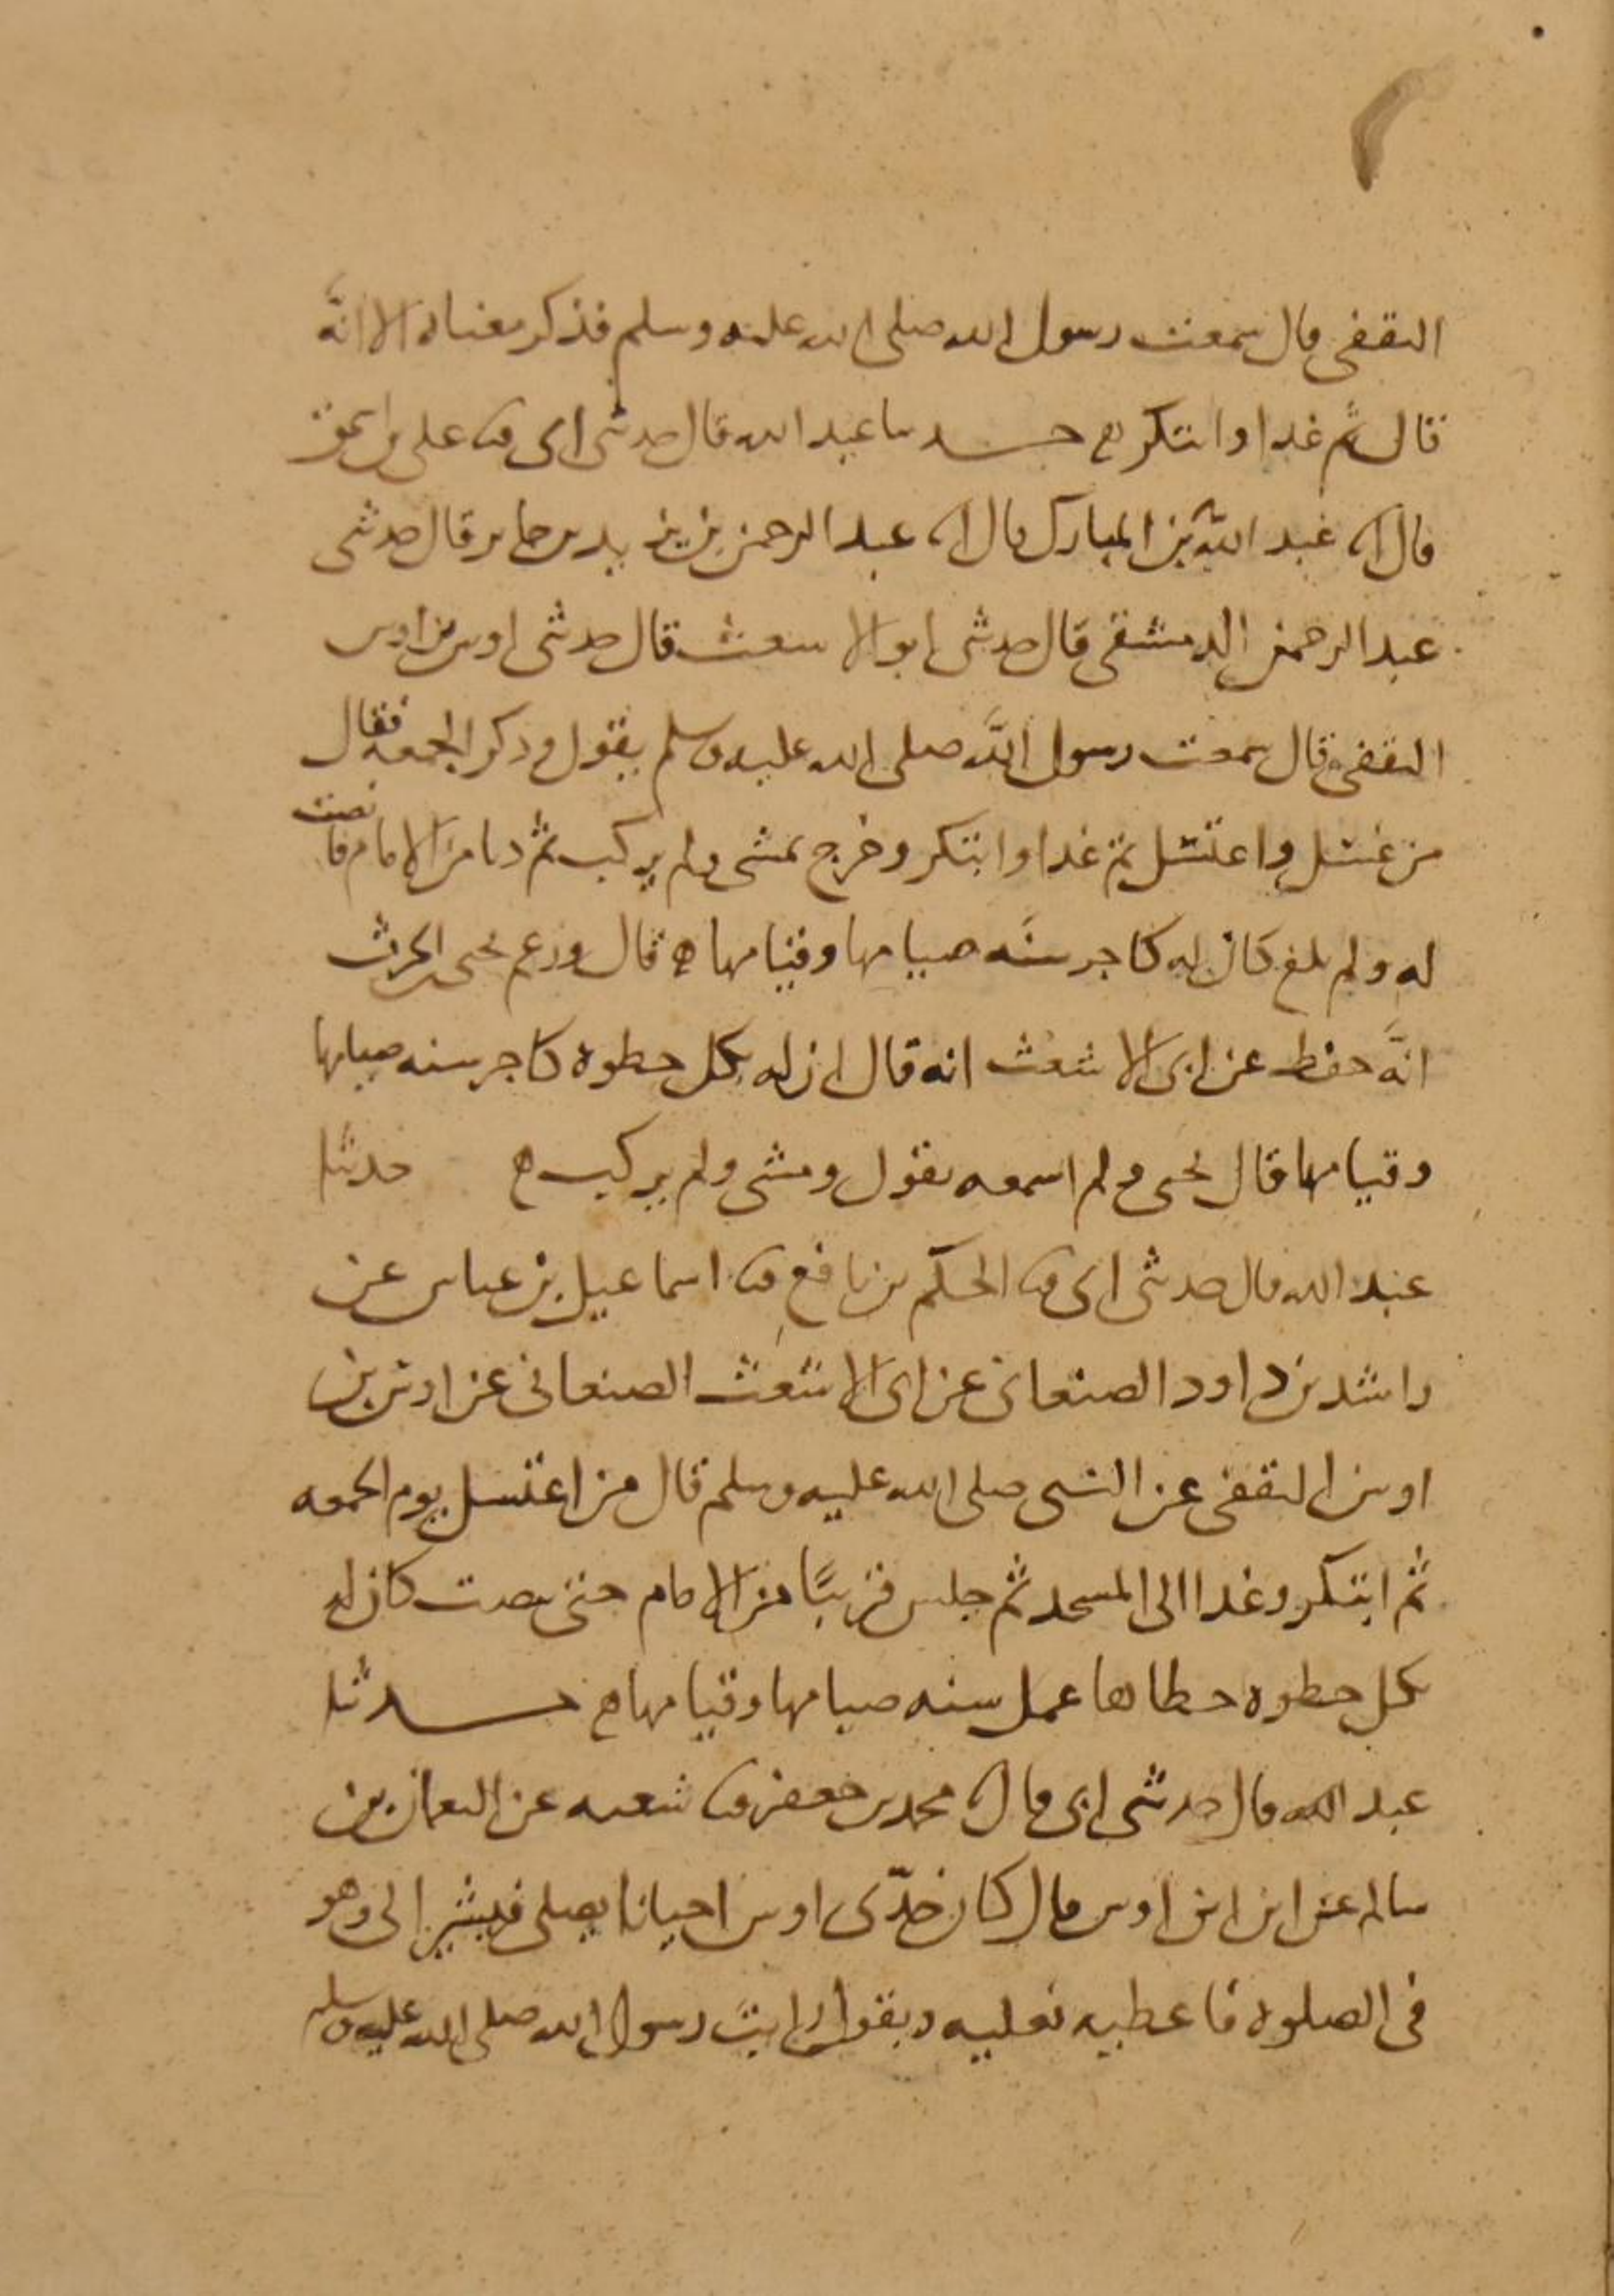 الثقفى قال سمعت رسول الله صلى الله عليه وسلم فذكر معناه الا انَّه
قال ثم غدا وابتكر ه حدثنا عبد الله قال حدثنى ابى ثنا على بن اسحق
قال انا عبد الله بن المبارك قال انا عبد الرحمن بن يزيد بن جابر قال حدثنى
عبد الرحمن الدمشقى قال حدثنى ابو الاشعث قال حدثنى اوس بن اوس
الثقفى قال سمعت رسول الله صلى الله عليه وسلم يقول وذكر الجمعه فقال
من غسل واغتسل ثم غدا وابتكر وخرج يمشى ولم يركب ثم دنا من الامام فانصت
له ولم يلغ كان له كاجر سنَه صيامها وقيامها ه قال وزعم يحيى بن الحرث
انَّه حفظ عن ابى الاشعث انه قال ان له بكل خطوه كاجر سنه صيامها
وقيامها قال يحيى ولم اسمعه يقول ومشى ولم يركب ه حدثنا
عبد الله قال حدثنى ابى ثنا الحكم بن نافع ثنا اسماعيل بن عياش عن
راشد بن داود الصنعانى عن ابى الاشعث الصنعانى عن اوس بن
اوس الثقفى عن النبى صلى الله عليه وسلم قال من اغتسل يوم الجمعه
ثم ابتكر وغدا الى المسجد ثم جلس قريبًا من الامام حتى ينصت كان له
بكل خطوه خطاها عمل سنه صيامها وقيامها ه حدثنا
عبد الله قال حدثنى ابى قال ثنا محمد بن جعفر ثنا شعبه عن النعمان بن
سالم عن ابن ابن اوس قال كان جدّى اوس احيانا يصلى فيشير الى وهو
فى الصلوه فاعطيه نعليه ويقول رايت رسول الله صلى الله عليه وسلم